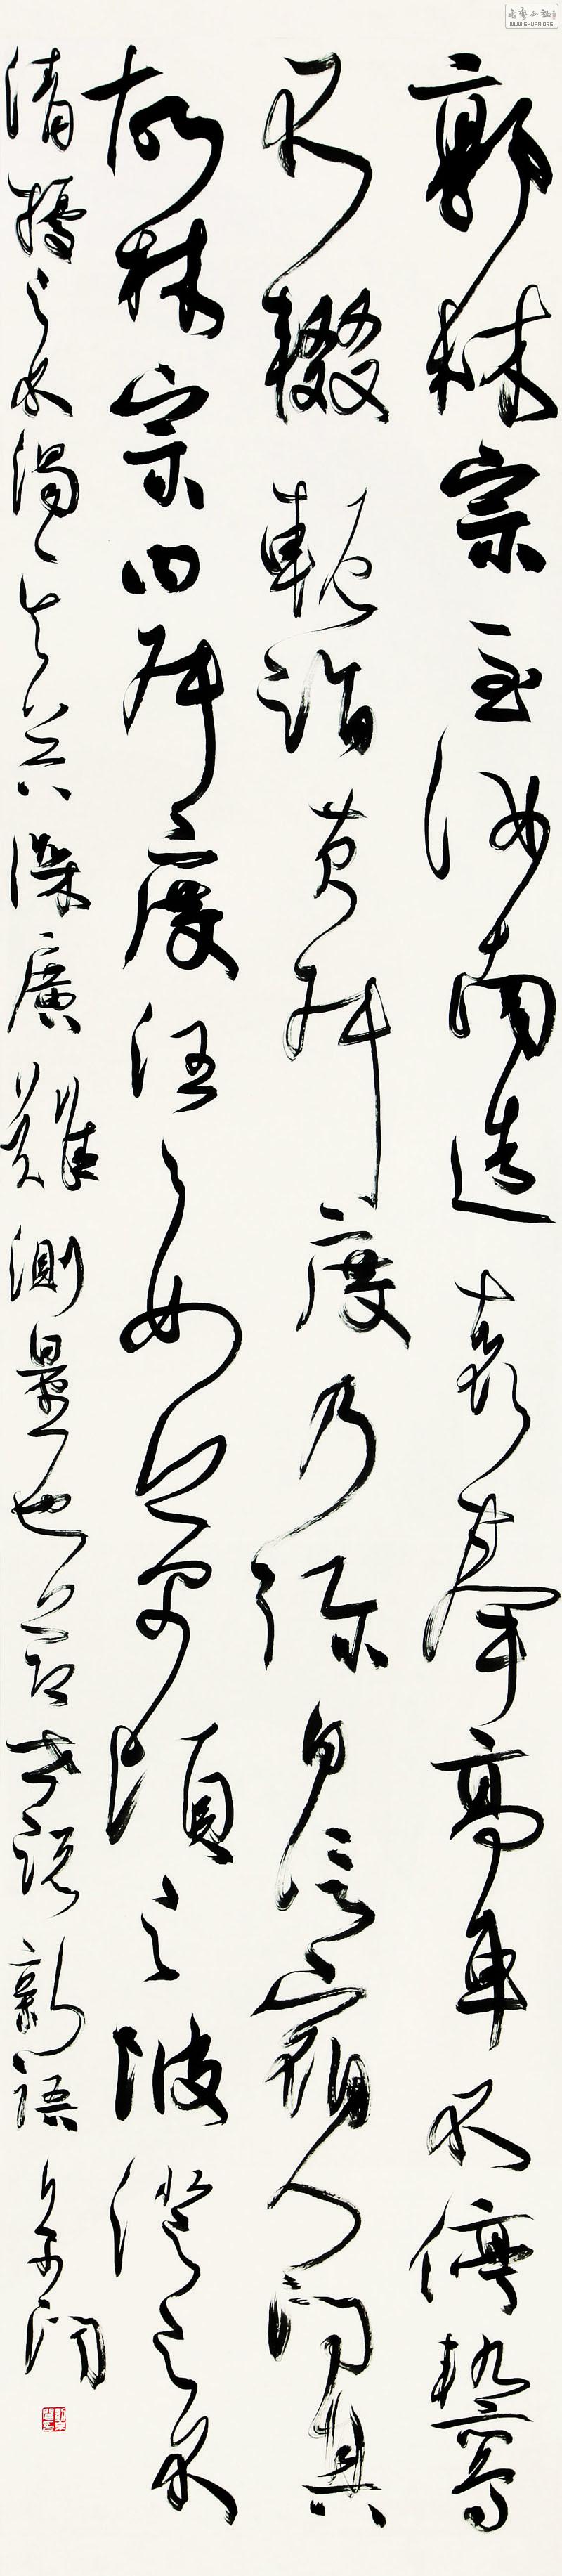 郭林宗至汝南造袁奉高車不停軌鸞
不輟軛詣黃叔度乃弥日信宿人問其
故林宗曰叔度汪汪如萬頃之陂澄之不
清擾之不濁其器深廣難測量也世說新語
WWW.SHUFA.ORG